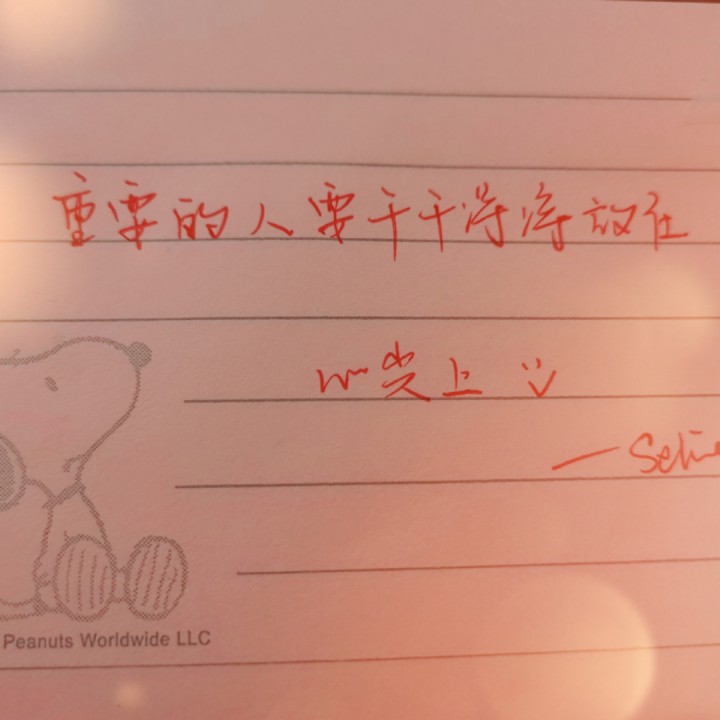 重要的人要干干净净放在
心尖上
— Seli
Peanuts Worldwide LLC